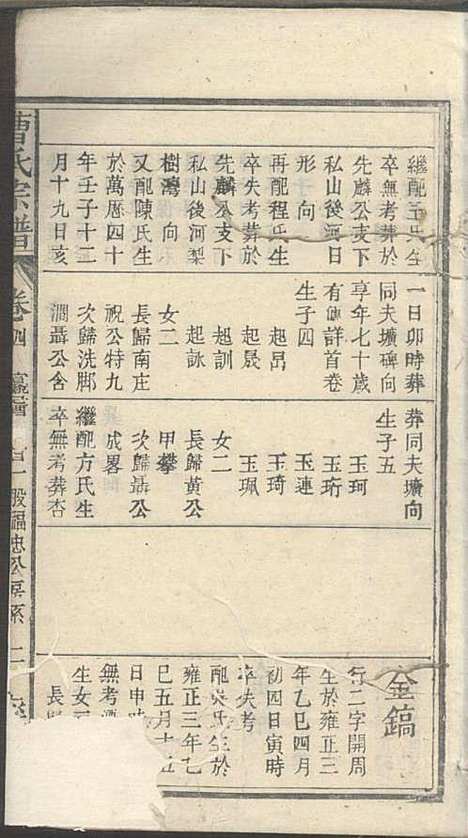 繼配王氏生
卒無考葬於
先麟公支下
私山後河日
形向
再配程氏生
卒失考葬於
先麟公支下
私山後河梨
樹灣向
又配陳氏生
於萬厯四十
年壬子十二
月十九日亥
一日卯時葬
同夫壙碑向
享年七十歲
有傳詳首卷
生子四
起昂
起晟
起訓
起詠
女二
長歸南庄
祝公特九
次歸洗脚
澗聶公含
葬同夫壙向
生子五
玉珂
玉珩
玉連
玉琦
玉珮
女二
長歸黄公
甲攀
次歸聶公
成畧
繼配方氏生
卒無考葬杏
金鎬
行二字開周
生於雍正三
年乙巳四月
初四日寅時
卒失考
配吳氏生於
雍正三年乙
巳五月十五
日申時
無考
生女
長
曹氏宗譜
卷四
股福忠公房系